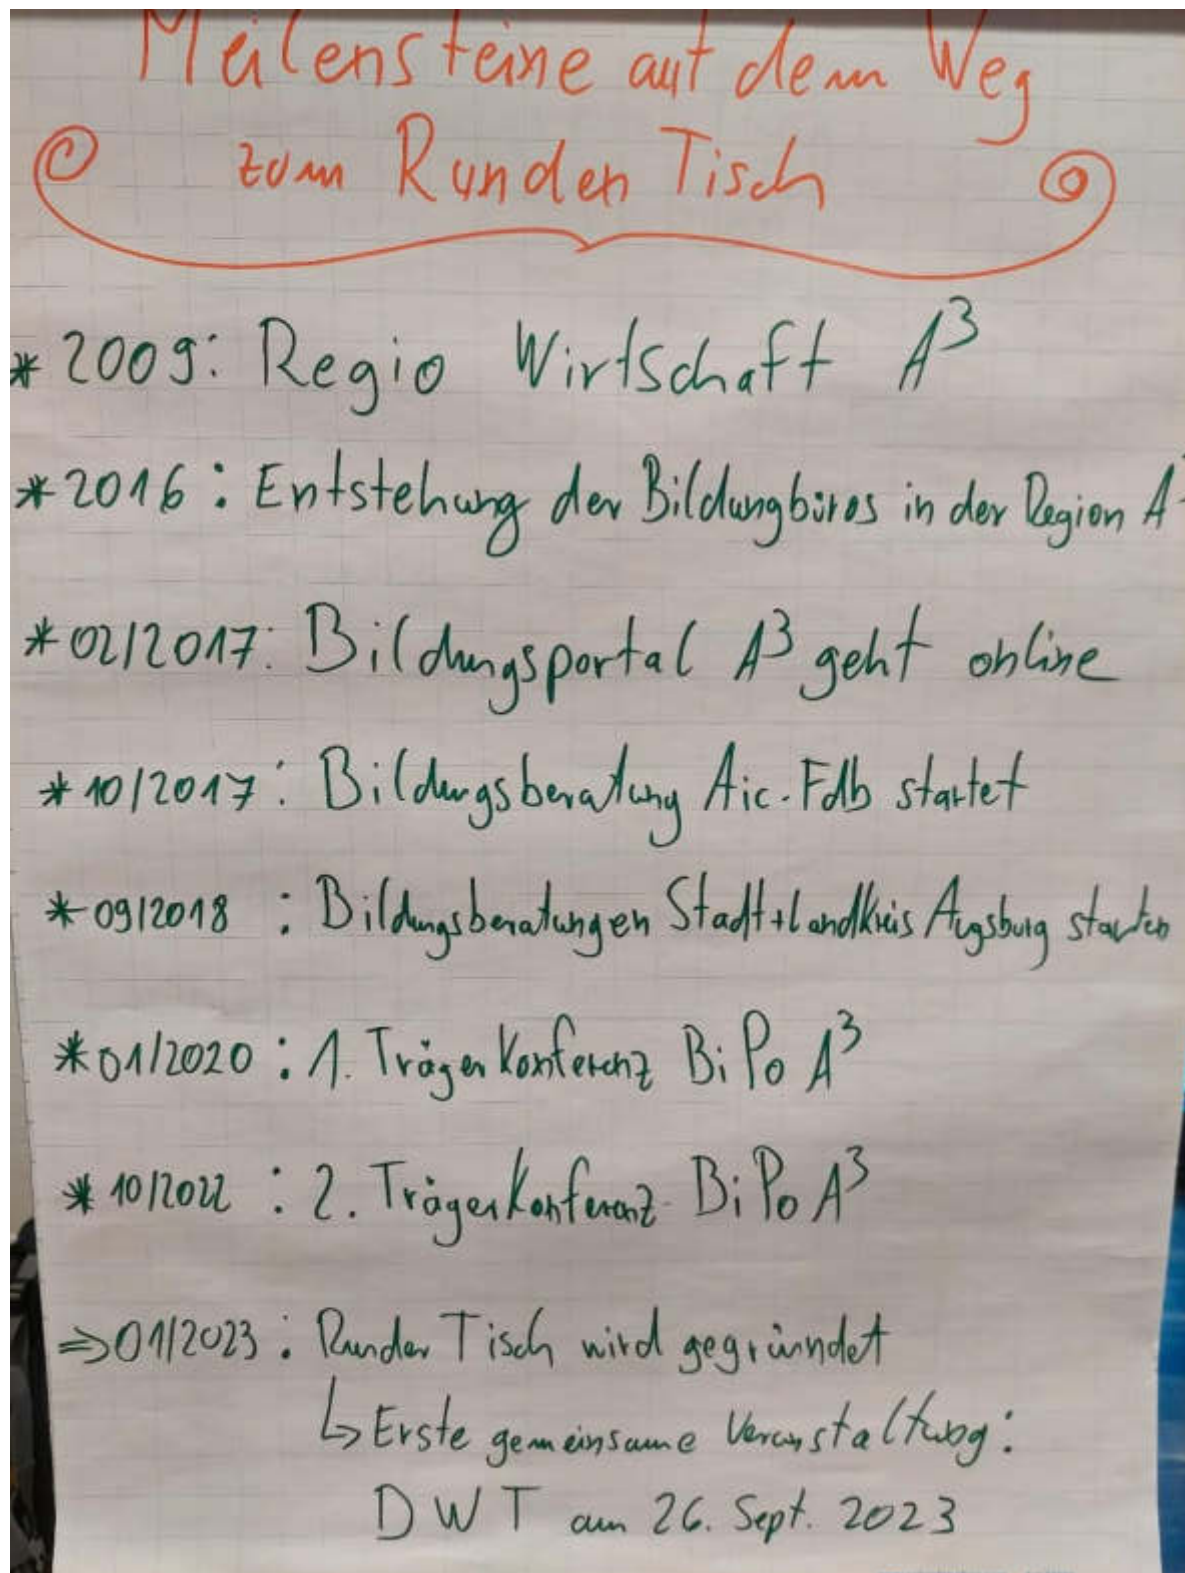 Meilensteine auf dem Weg
zum Runden Tisch
* 2009: Regio Wirtschaft A³
* 2016: Entstehung der Bildungbüros in der Region A³
* 02/2017: Bildungsportal A³ geht online
* 10/2017: Bildungsberatung Aic-Fdb startet
* 09/2018: Bildungsberatungen Stadt + Landkreis Augsburg starten
* 01/2020: 1. Trägerkonferenz BiPo A³
* 10/2022: 2. Trägerkonferenz BiPo A³
⇒ 01/2023: Runder Tisch wird gegründet
↳ Erste gemeinsame Veranstaltung:
DWT am 26. Sept. 2023